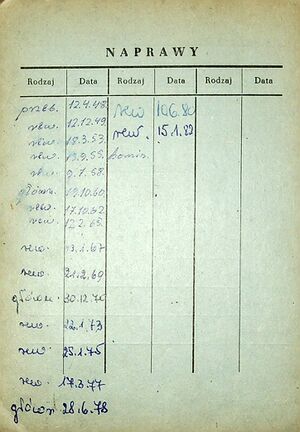 NAPRAWY
Rodzaj Data Rodzaj Data Rodzaj Data
12.4.48. rew 10.6.80
rew. 12.12.49 rew. 15.1.82
rew. 18.3.53.
rew. .55.
rew. .7.58.
główn. .10.60.
rew. 17.10.62
rew. 12.2.65.
rew .1.67
rew. 21.2.69
główn. 30.12.70
rew. 22.1.73
rew 25.1.75
rew. 17.3.77
główn 28.6.78